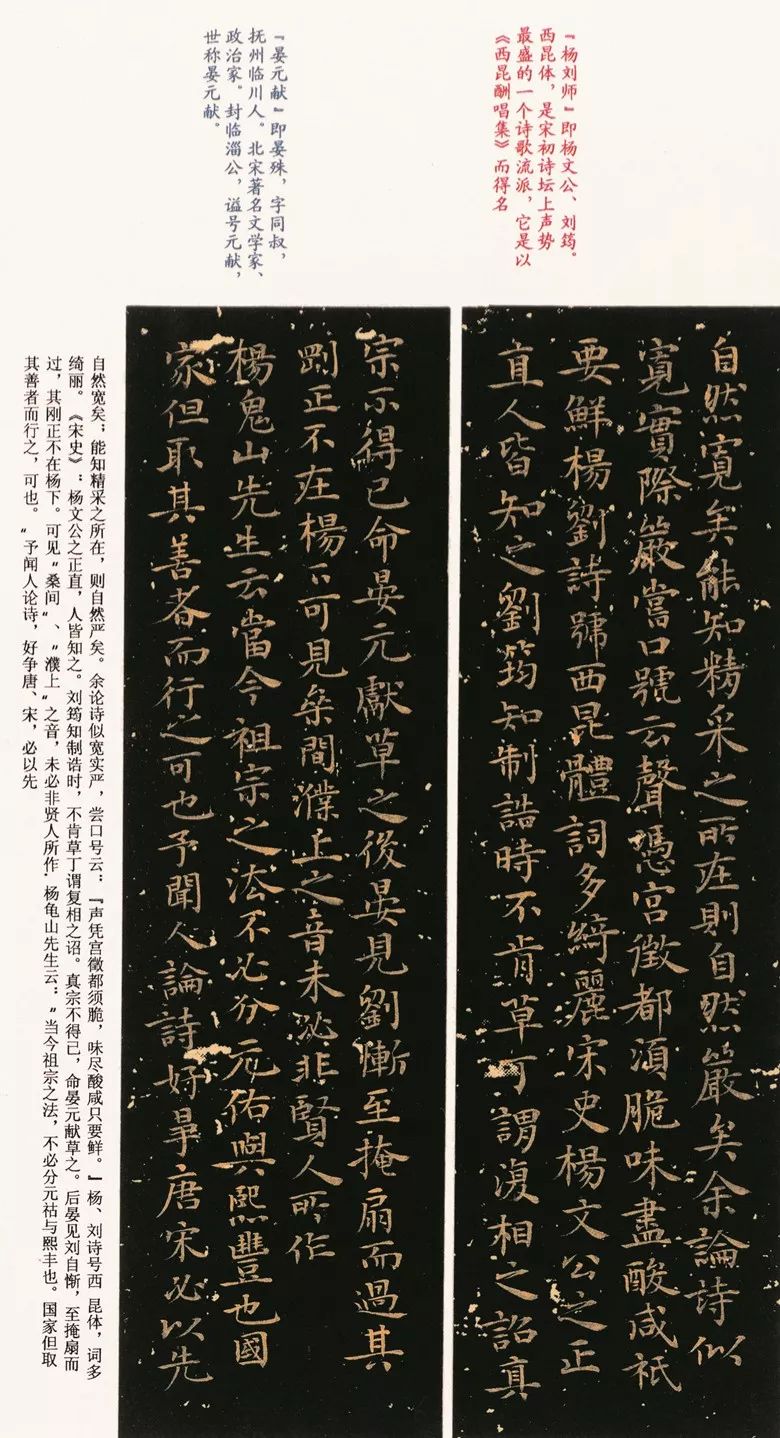 『杨刘师』即杨文公、刘筠。
西昆体，是宋初诗坛上声势
最盛的一个诗歌流派，它是以
《西昆酬唱集》而得名
『晏元献』即晏殊，字同叔，
抚州临川人。北宋著名文学家、
政治家。封临淄公，谥号元献，
世称晏元献。
自然寬矣能知精采之所在則自然嚴矣余論詩似
寬實際嚴嘗口號云聲憑宮徵都須脆味盡酸咸祇
要鮮楊劉詩號西昆體詞多綺麗宋史楊文公之正
直人皆知之劉筠知制誥時不肯草丁謂復相之詔真
宗不得已命晏元獻草之後晏見劉慚至掩扇而過其
剛正不在楊下可見桑間濮上之音未必非賢人所作
楊龜山先生云當今祖宗之法不必分元佑與熙豐也國
家但取其善者而行之可也予聞人論詩好爭唐宋必以先
自然宽矣；能知精采之所在，则自然严矣。余论诗似宽实严，尝口号云：『声凭宫徵都须脆，味尽酸咸只要鲜。』杨、刘诗号西昆体，词多
绮丽。《宋史》：杨文公之正直，人皆知之。刘筠知制诰时，不肯草丁谓复相之诏。真宗不得已，命晏元献草之。后晏见刘自惭，至掩扇而
过，其刚正不在杨下。可见“桑间”、“濮上”之音，未必非贤人所作.杨龟山先生云：“当今祖宗之法，不必分元祜与熙丰也。国家但取
其善者而行之，可也。“予闻人论诗，好争唐、宋，必以先